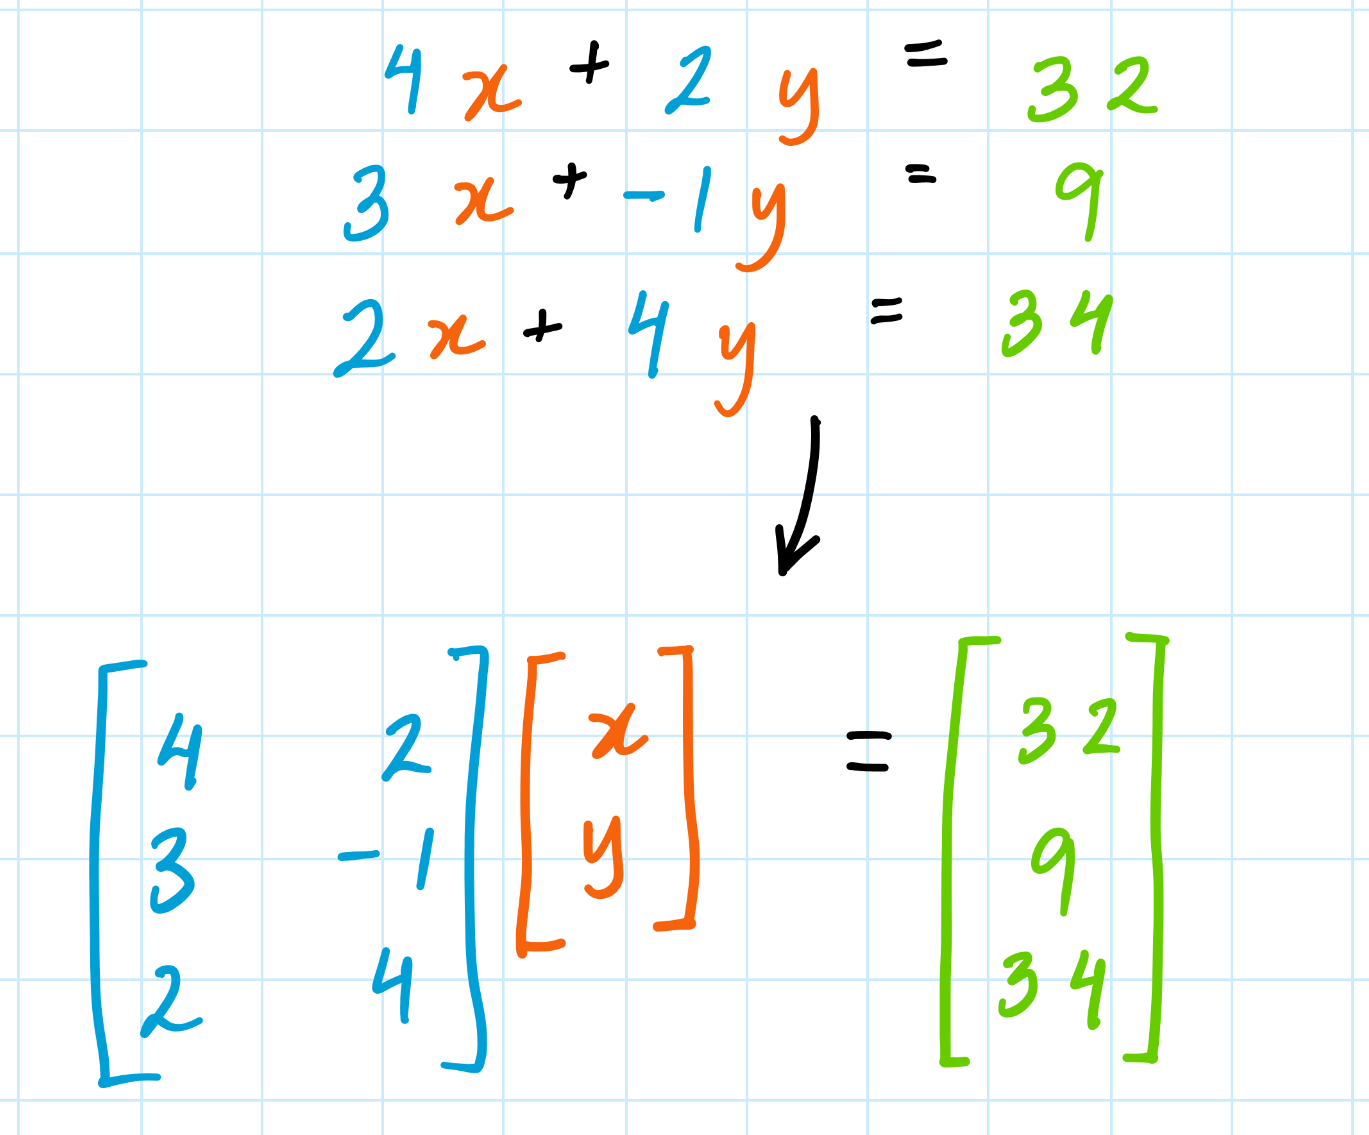 4x + 2y = 32
3x + -1y = 9
2x + 4y = 34
[4 2] [x] = [32]
[3 -1] [y] [9]
[2 4] [34]